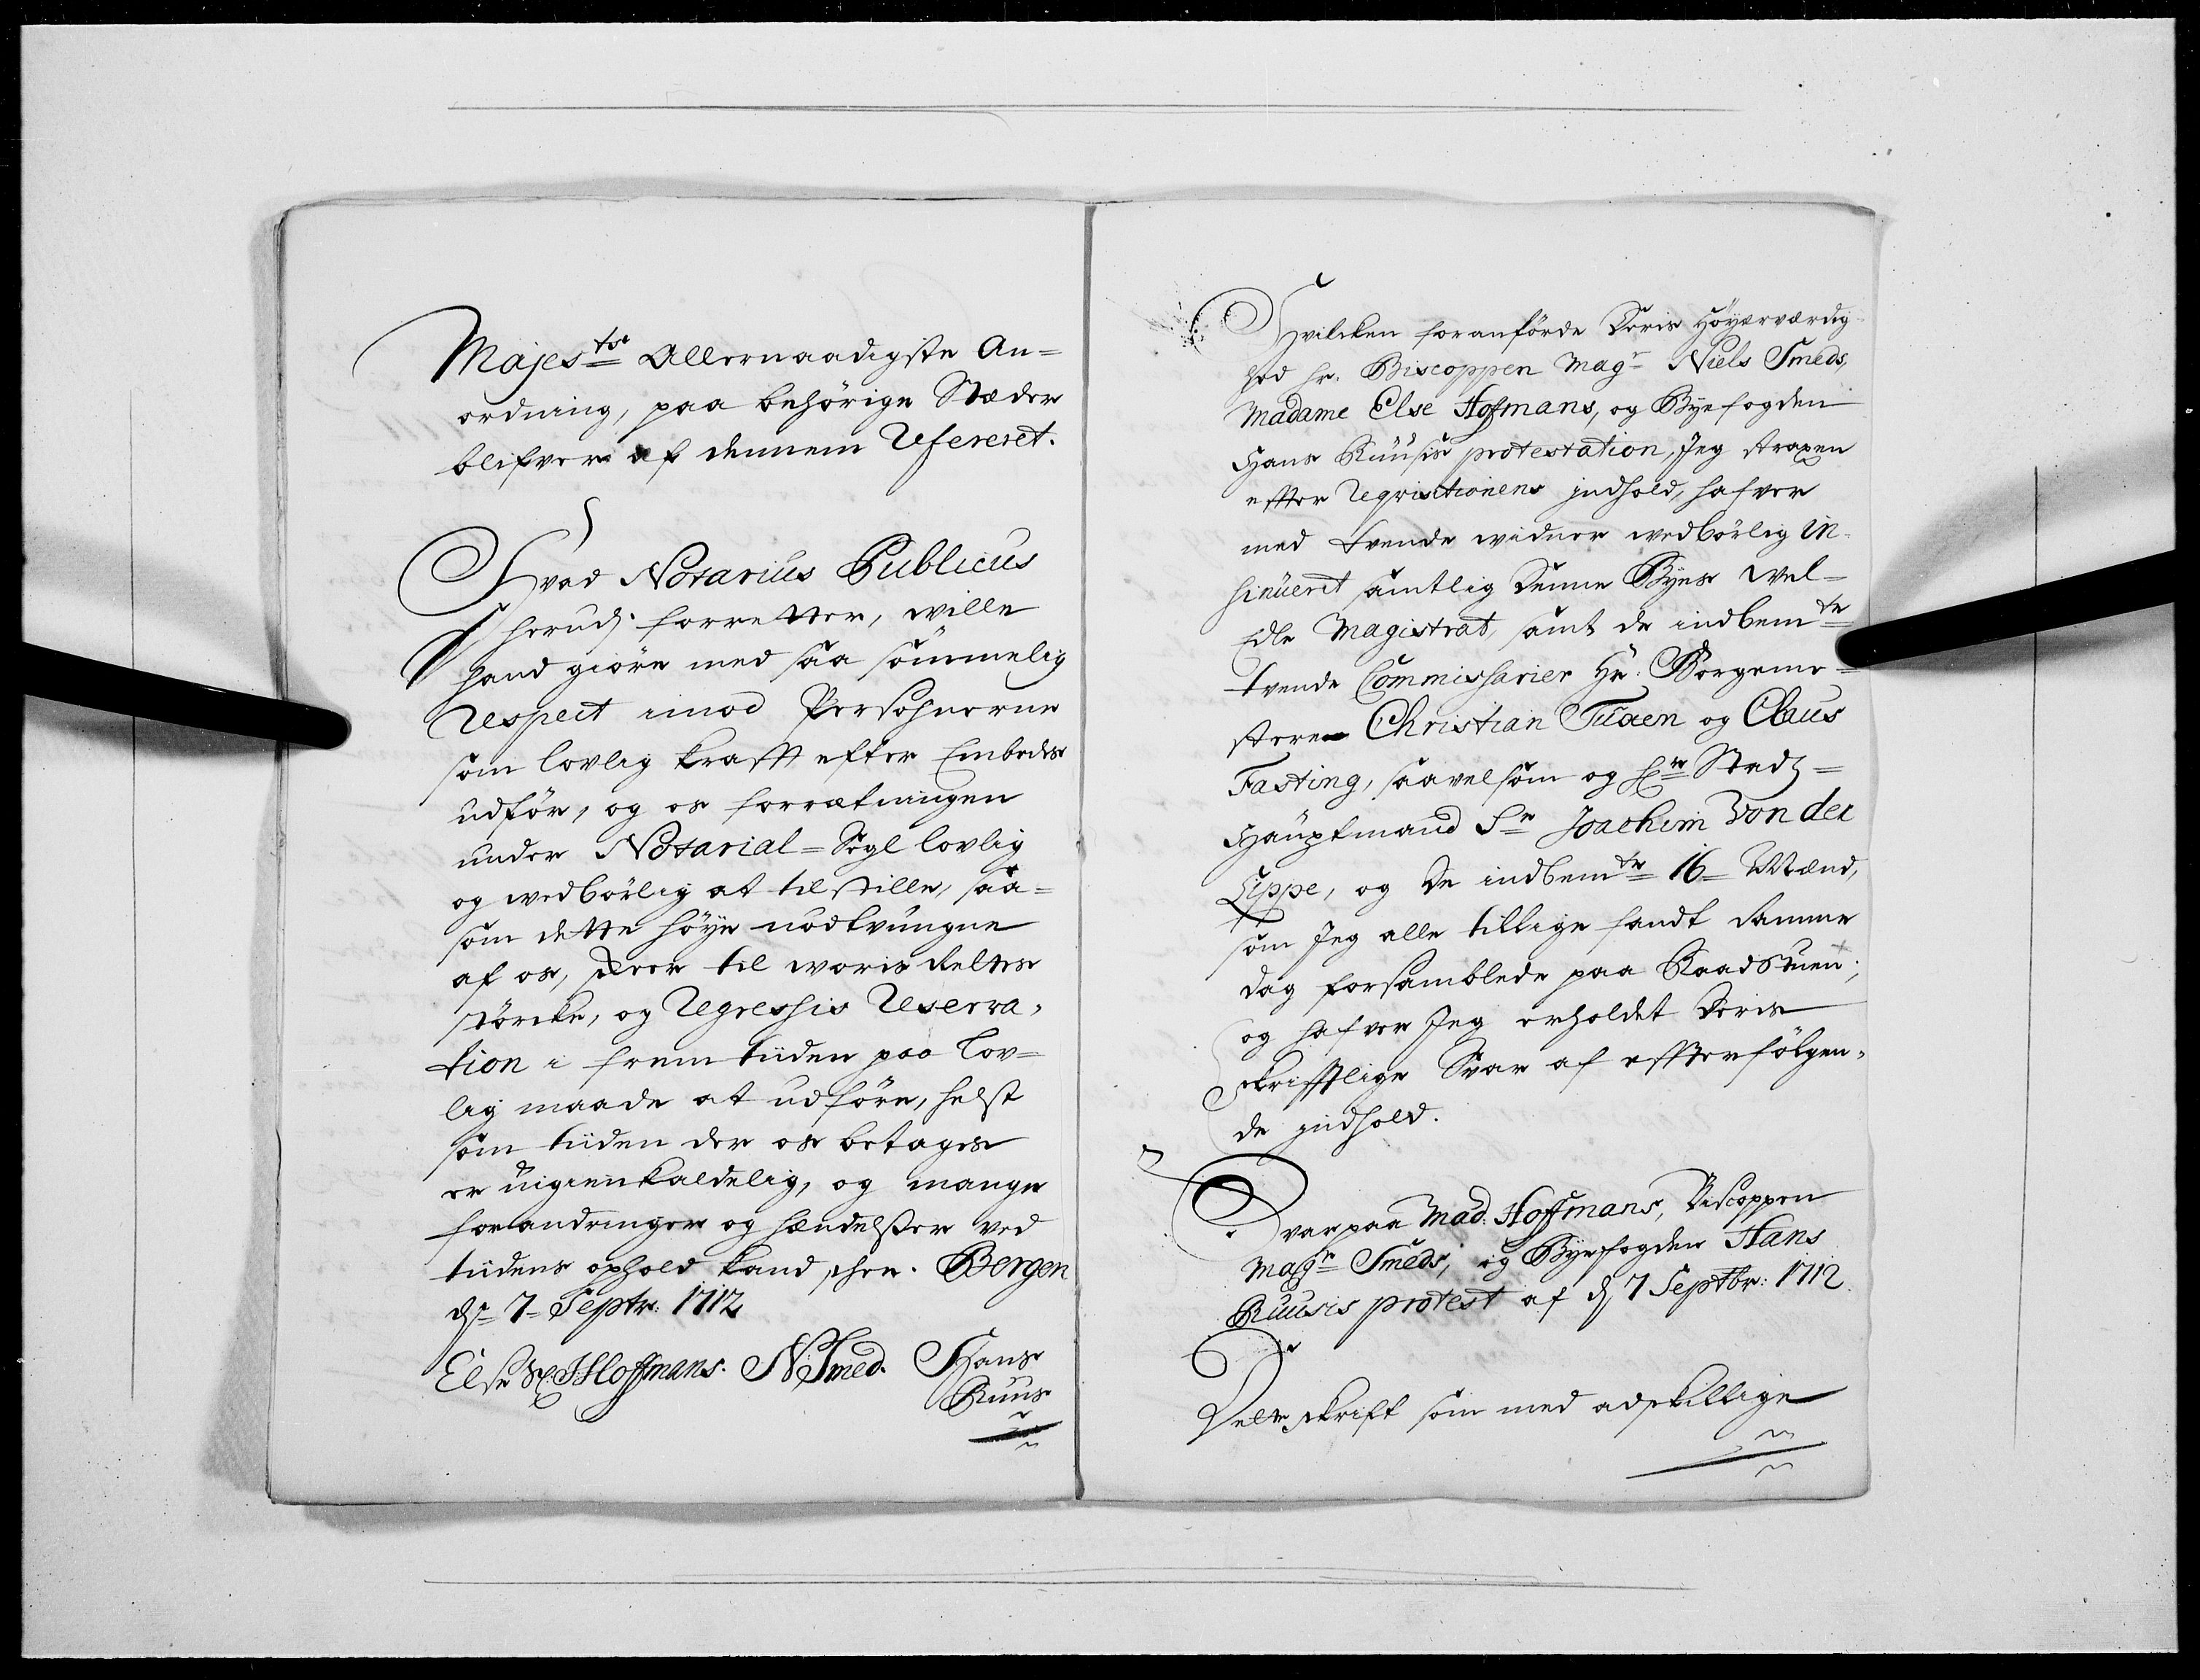 Majes<sup>ts</sup> Allernaadigste An=
ordning, paa behörige Stæder
blifver af dennem Refereret.
Hvad Notarius Publicus
herudj forretter, wille
hand giöre med saa sömmelig
respect imod Persohnerne
som lovlig krafft efter Embedes
udför, og os forrætningen
under Notarial=Segl lovlig
og wedbörlig at tilstille, saa=
som dette höye nödtvungne
af os, skeer til woris Rettes
störcke, og Regressis Reserva=
tion i frem tiiden paa lov=
lig maade at udföre, helst
som tiiden der os betages
er uigienkaldelig, og mange
forandringer og hændelser ved
tiidens ophold kand skee. Bergen
d: 7 Septr: 1712
Else Sl: Hoffmans. NSmed. Hans
Ruus
Hvilcken foranförde Deris Höyærværdig
hed hr. Biscoppen Mag<sup>r</sup> Niels Smeds,
Madame Else Hofmans, og Byefogden
Hans Ruusis protestation, Jeg straxen
effter Reqvisitionens indhold, hafver
med tvende widner wedbörlig in=
sinüeret samtlig Denne Byes Wel=
Edle Magistrat, samt de indbem<sup>te</sup>
tvende Commissarier Hr. Borgeme=
stere Christian Tuxen og Claus
Fasting, saavelsom og Stadz=
Hauptmand S<sup>r</sup> Joachim Von der
Lippe, og De indbem<sup>te</sup> 16 Mænd,
som Jeg alle tillige fandt samme
dag forsamblede paa Raadstuen;
og hafver Jeg erholdet Deris
skrifftlige Svar af effterfölgen=
de indhold.
Svar paa Mad: Hoffmans, Biscoppen
Mag<sup>r</sup> Smeds, og Byefogden Hans
Ruusis protest af d: 7 Septbr: 1712.
Dette skrift som med adskillige